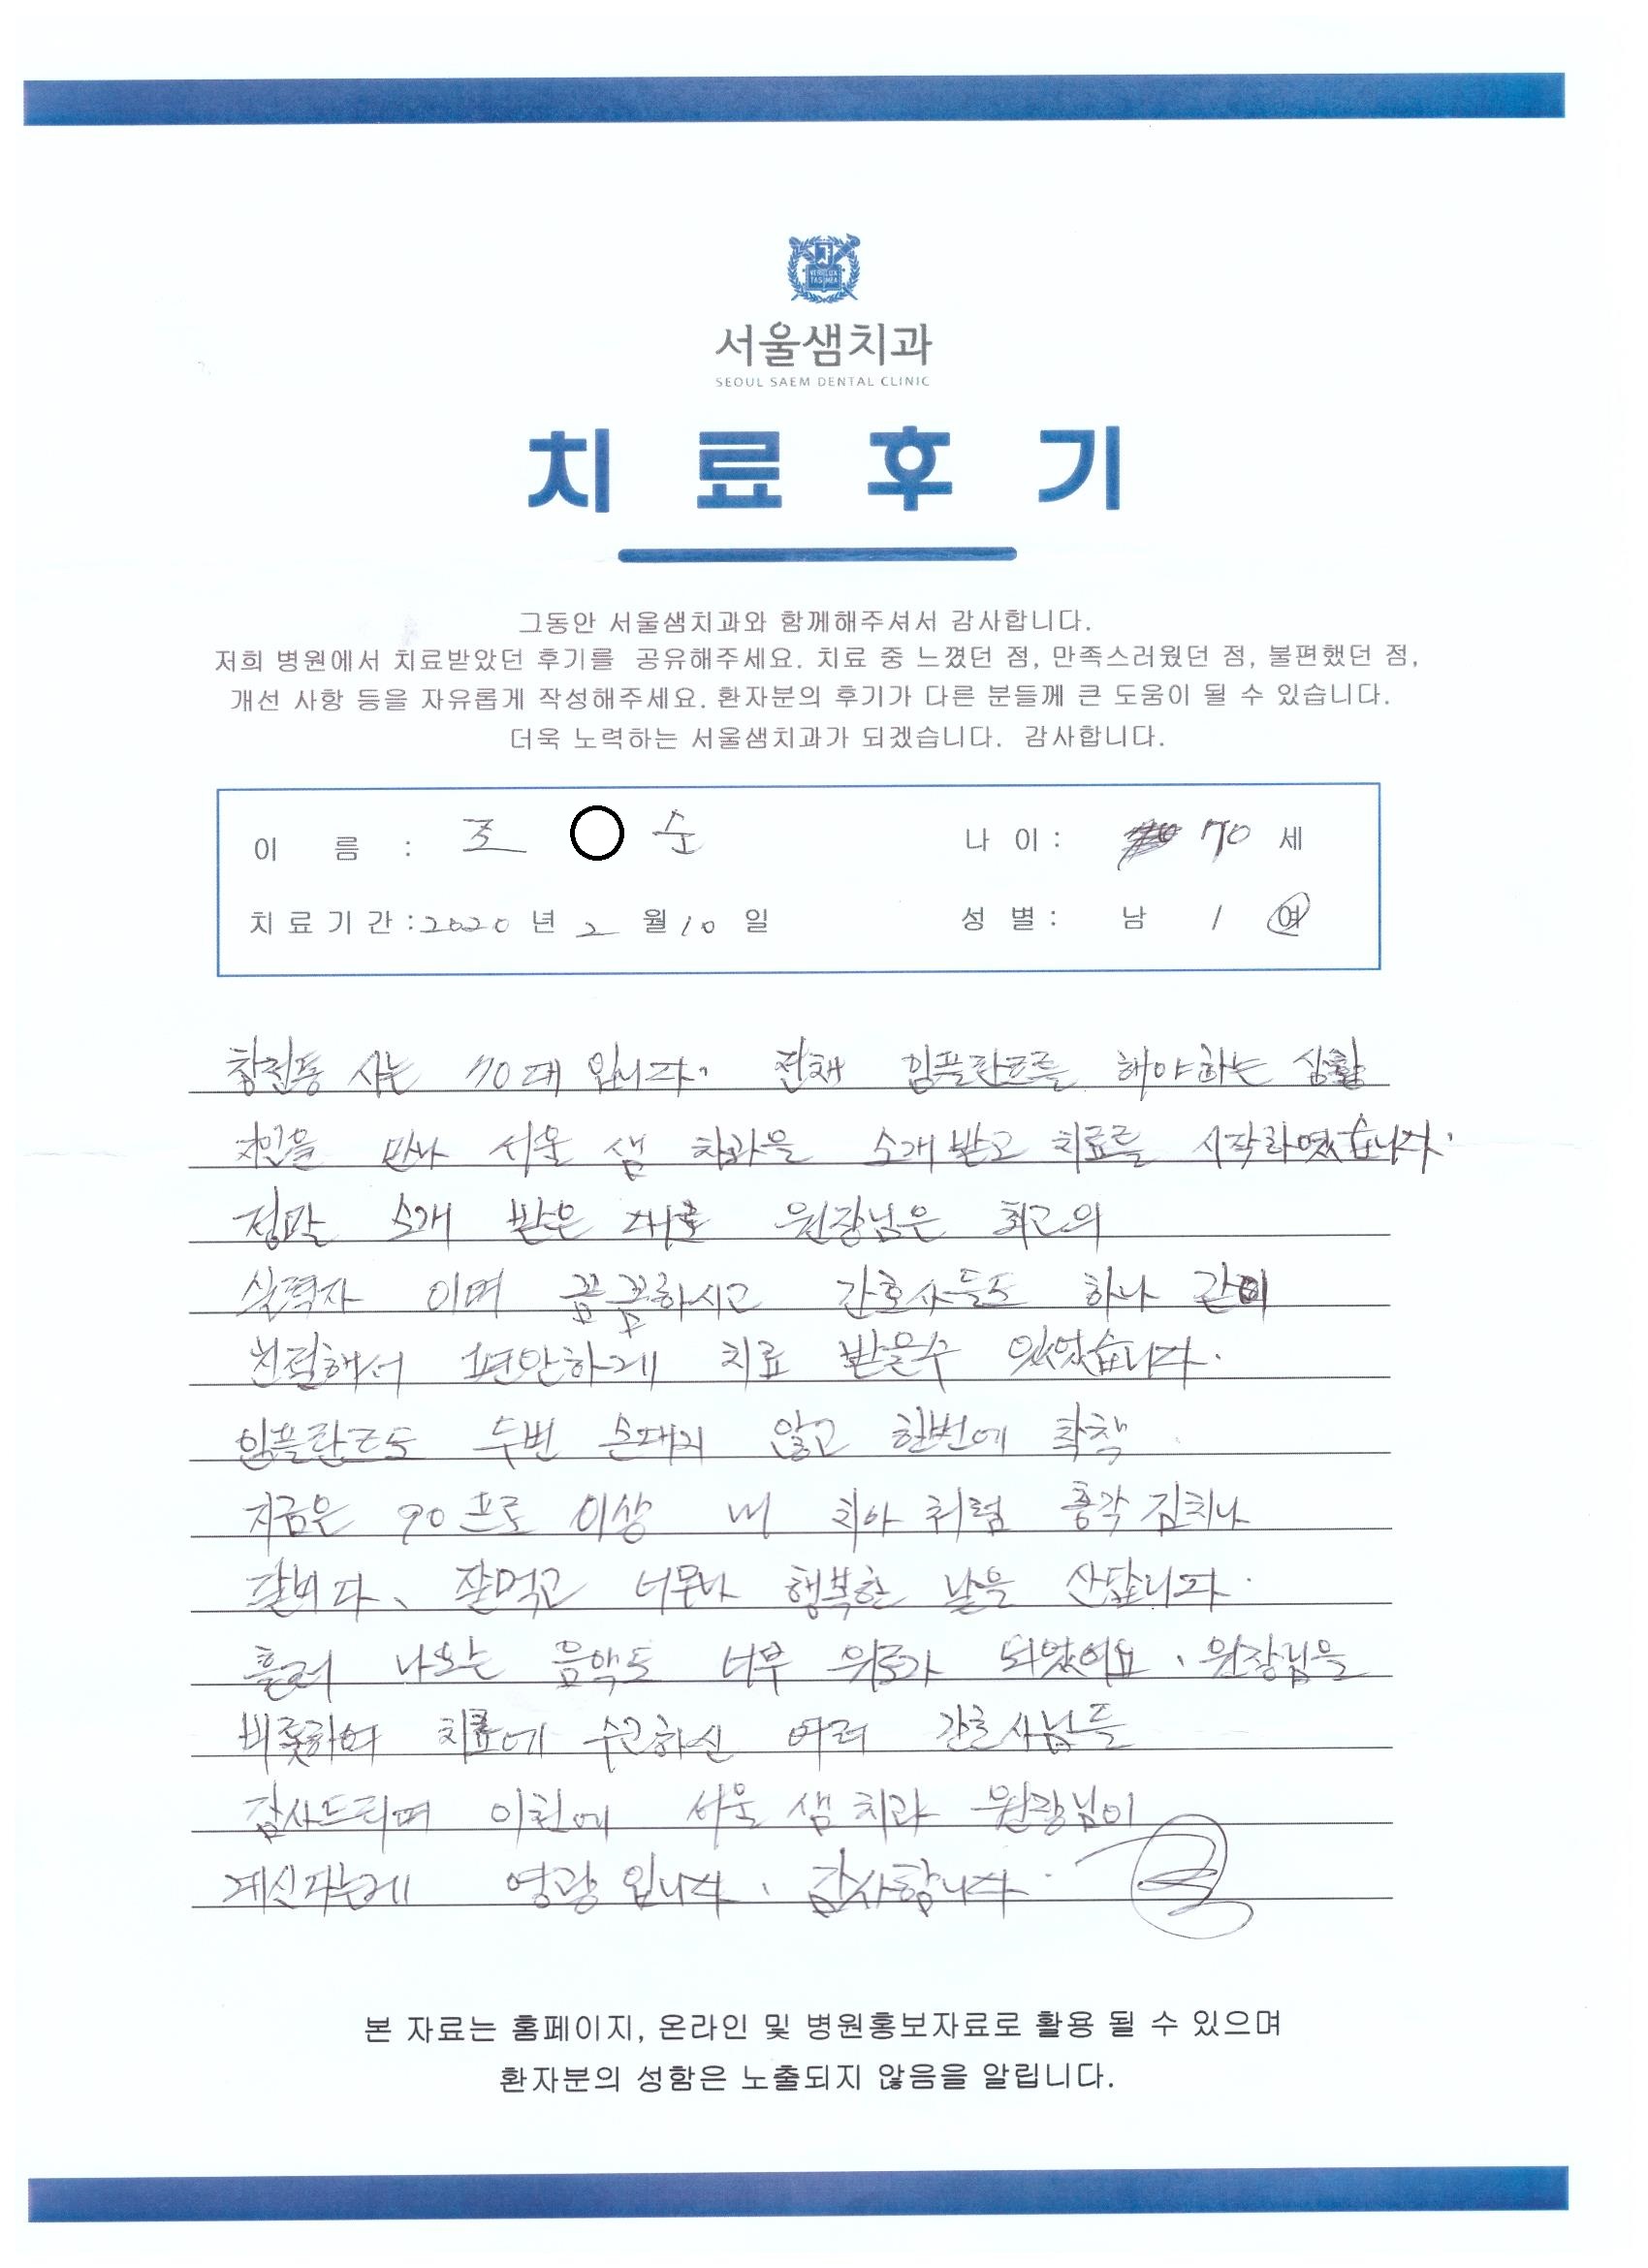 서울샘치과
SEOUL SAEM DENTAL CLINIC
치 료 후 기
그동안 서울샘치과와 함께해주셔서 감사합니다.
저희 병원에서 치료받았던 후기를 공유해주세요. 치료 중 느꼈던 점, 만족스러웠던 점, 불편했던 점,
개선 사항 등을 자유롭게 작성해주세요. 환자분의 후기가 다른 분들께 큰 도움이 될 수 있습니다.
더욱 노력하는 서울샘치과가 되겠습니다. 감사합니다.
이 름 : 조 ○ 순 나 이 : 70 세
치료기간 : 2020 년 2 월 10 일 성 별 : 남 / 여
창전동 사는 70대 입니다. 전채 임플란트를 해야하는 상황
지인을 만나 서울 샘 치과을 소개 받고 치료를 시작하였습니다.
정말 소개 받은 대로 원장님은 최고의
실력자 이며 꼼꼼하시고 간호사들도 하나 같이
친절해서 편안하게 치료 받을수 있었습니다.
임플란트도 두번 손대지 않고 한번에 착착
지금은 90프로 이상 내 치아 처럼 총각 김치나
갈비다、 잘먹고 너무나 행복한 날을 산답니다.
흘러 나오는 음악도 너무 위로가 되었어요、 원장님을
비롯하여 치료에 수고하신 여러 간호사님들
감사드리며 이천에 서울 샘 치과 원장님이
계신다는게 영광 입니다. 감사합니다.
본 자료는 홈페이지, 온라인 및 병원홍보자료로 활용 될 수 있으며
환자분의 성함은 노출되지 않음을 알립니다.